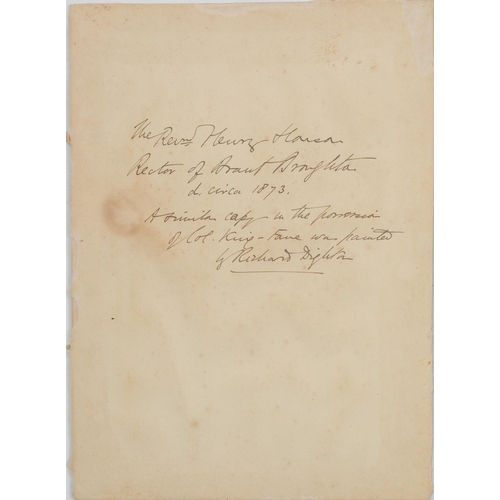 The Revnd Henry Houson
Rector of Brant Broughton
d. circa 1873.
A similar copy in the possession
of Col. King-Fane was painted
by Richard Dighton